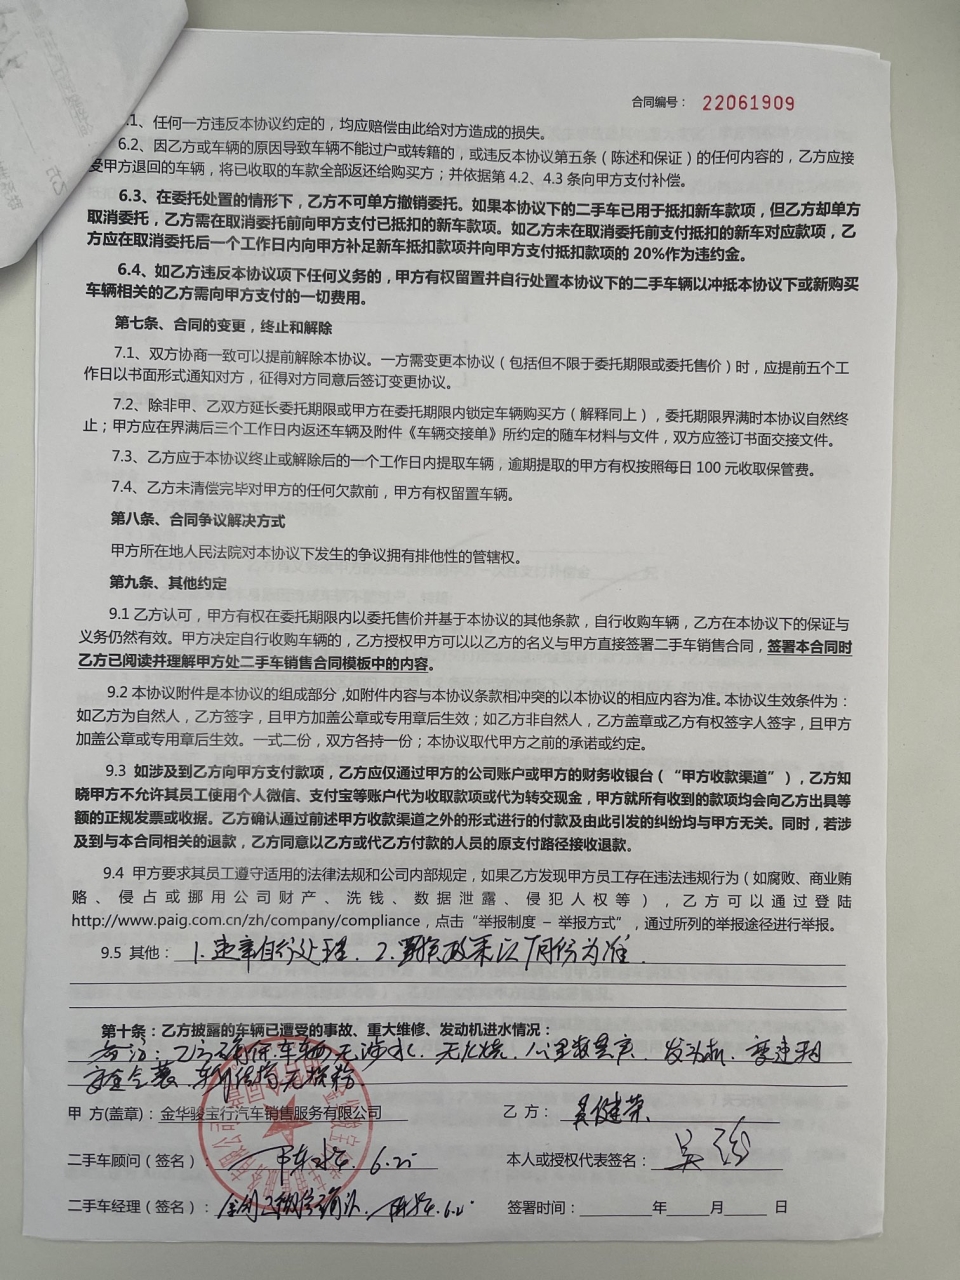 合同编号： 22061909
.1、任何一方违反本协议约定的，均应赔偿由此给对方造成的损失。
6.2、因乙方或车辆的原因导致车辆不能过户或转籍的，或违反本协议第五条（陈述和保证）的任何内容的，乙方应接
受甲方退回的车辆，将已收取的车款全部返还给购买方；并依据第 4.2、4.3 条向甲方支付补偿。
6.3、在委托处置的情形下，乙方不可单方撤销委托。如果本协议下的二手车已用于抵扣新车款项，但乙方却单方
取消委托，乙方需在取消委托前向甲方支付已抵扣的新车款项。如乙方未在取消委托前支付抵扣的新车对应款项，乙
方应在取消委托后一个工作日内向甲方补足新车抵扣款项并向甲方支付抵扣款项的 20%作为违约金。
6.4、如乙方违反本协议项下任何义务的，甲方有权留置并自行处置本协议下的二手车辆以冲抵本协议下或新购买
车辆相关的乙方需向甲方支付的一切费用。
第七条、合同的变更，终止和解除
7.1、双方协商一致可以提前解除本协议。一方需变更本协议（包括但不限于委托期限或委托售价）时，应提前五个工
作日以书面形式通知对方，征得对方同意后签订变更协议。
7.2、除非甲、乙双方延长委托期限或甲方在委托期限内锁定车辆购买方（解释同上），委托期限界满时本协议自然终
止；甲方应在界满后三个工作日内返还车辆及附件《车辆交接单》所约定的随车材料与文件，双方应签订书面交接文件。
7.3、乙方应于本协议终止或解除后的一个工作日内提取车辆，逾期提取的甲方有权按照每日 100 元收取保管费。
7.4、乙方未清偿完毕对甲方的任何欠款前，甲方有权留置车辆。
第八条、合同争议解决方式
甲方所在地人民法院对本协议下发生的争议拥有排他性的管辖权。
第九条、其他约定
9.1 乙方认可，甲方有权在委托期限内以委托售价并基于本协议的其他条款，自行收购车辆，乙方在本协议下的保证与
义务仍然有效。甲方决定自行收购车辆的，乙方授权甲方可以以乙方的名义与甲方直接签署二手车销售合同，签署本合同时
乙方已阅读并理解甲方处二手车销售合同模板中的内容。
9.2 本协议附件是本协议的组成部分，如附件内容与本协议条款相冲突的以本协议的相应内容为准。本协议生效条件为：
如乙方为自然人，乙方签字，且甲方加盖公章或专用章后生效；如乙方非自然人，乙方盖章或乙方有权签字人签字，且甲方
加盖公章或专用章后生效。一式二份，双方各持一份；本协议取代甲方之前的承诺或约定。
9.3 如涉及到乙方向甲方支付款项，乙方应仅通过甲方的公司账户或甲方的财务收银台（“甲方收款渠道”），乙方知
晓甲方不允许其员工使用个人微信、支付宝等账户代为收取款项或代为转交现金，甲方就所有收到的款项均会向乙方出具等
额的正规发票或收据。乙方确认通过前述甲方收款渠道之外的形式进行的付款及由此引发的纠纷均与甲方无关。同时，若涉
及到与本合同相关的退款，乙方同意以乙方或代乙方付款的人员的原支付路径接收退款。
9.4 甲方要求其员工遵守适用的法律法规和公司内部规定，如果乙方发现甲方员工存在违法违规行为（如腐败、商业贿
赂、侵占或挪用公司财产、洗钱、数据泄露、侵犯人权等），乙方可以通过登陆
http://www.paig.com.cn/zh/company/compliance，点击“举报制度 – 举报方式”，通过所列的举报途径进行举报。
9.5 其他： 1. 违章自行处理. 2. 置换政策以7月份为准.
第十条：乙方披露的车辆已遭受的事故、重大维修、发动机进水情况：
备注：乙方确保车辆无涉水. 无火烧. 公里数真实. 发动机. 变速箱
安全气囊.
甲 方(盖章)： 金华骏宝行汽车销售服务有限公司 乙 方： 吴健荣
二手车顾问（签名）： 6.25 本人或授权代表签名： 吴
二手车经理（签名）： 签署时间： 年 月 日